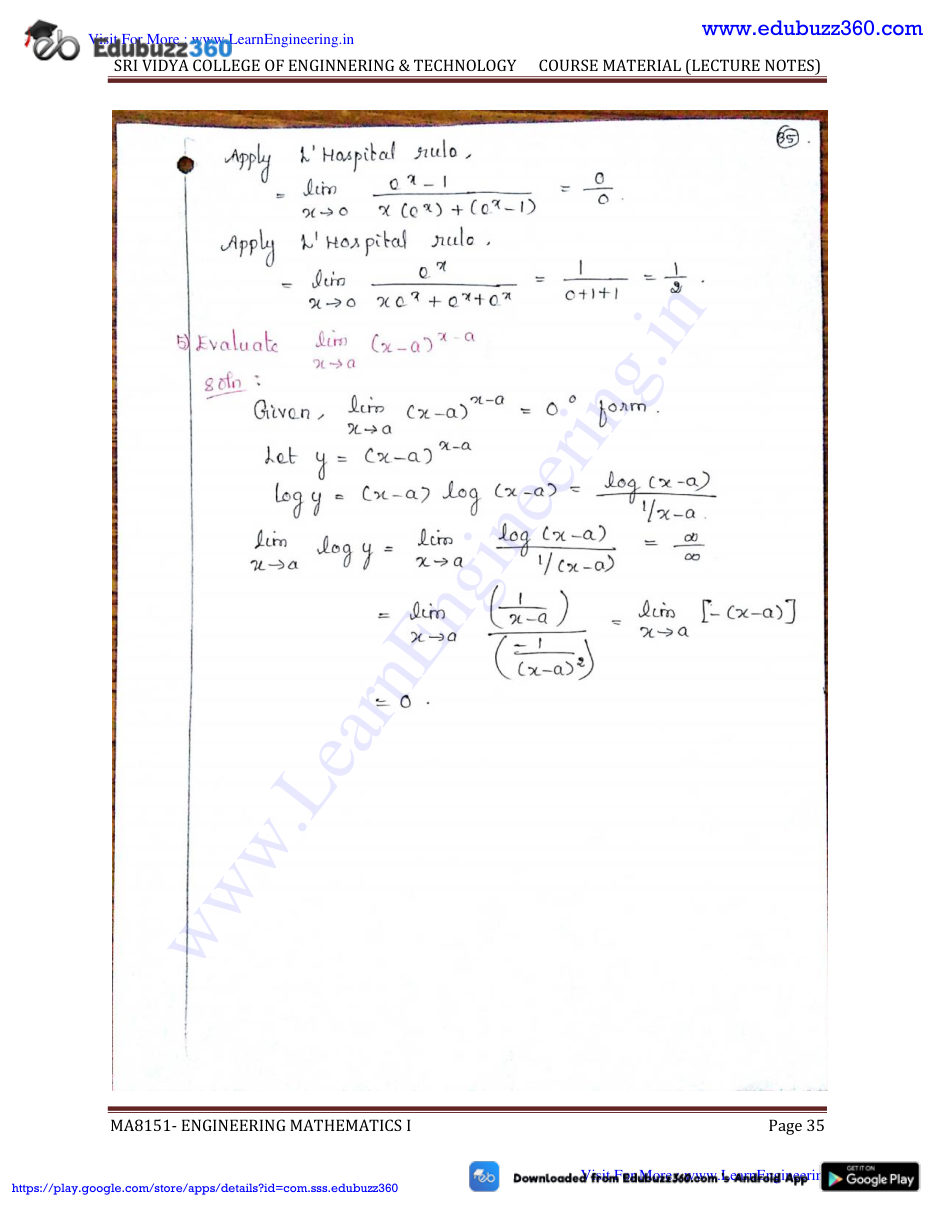 www.edubuzz360.com
Visit For More : www.LearnEngineering.in
Edubuzz360
SRI VIDYA COLLEGE OF ENGINNERING & TECHNOLOGY COURSE MATERIAL (LECTURE NOTES)
35.
Apply L'Hospital rule,
= lim x→0 (e^x - 1) / (x(e^x) + (e^x - 1)) = 0/0.
Apply L'Hospital rule.
= lim x→0 e^x / (xe^x + e^x + e^x) = 1/(0+1+1) = 1/2.
5) Evaluate lim x→a (x-a)^(x-a)
Soln :
Given, lim x→a (x-a)^(x-a) = 0^0 form.
Let y = (x-a)^(x-a)
log y = (x-a) log (x-a) = log (x-a) / 1/x-a.
lim x→a log y = lim x→a log (x-a) / 1/(x-a) = ∞/∞
= lim x→a (1/(x-a)) / (-1/(x-a)^2) = lim x→a [-(x-a)]
= 0.
www.LearnEngineering.in
MA8151- ENGINEERING MATHEMATICS I Page 35
https://play.google.com/store/apps/details?id=com.sss.edubuzz360
Downloaded from EduBuzz360.com 's Android App
Visit For More : www.LearnEngineerin
GET IT ON
Google Play